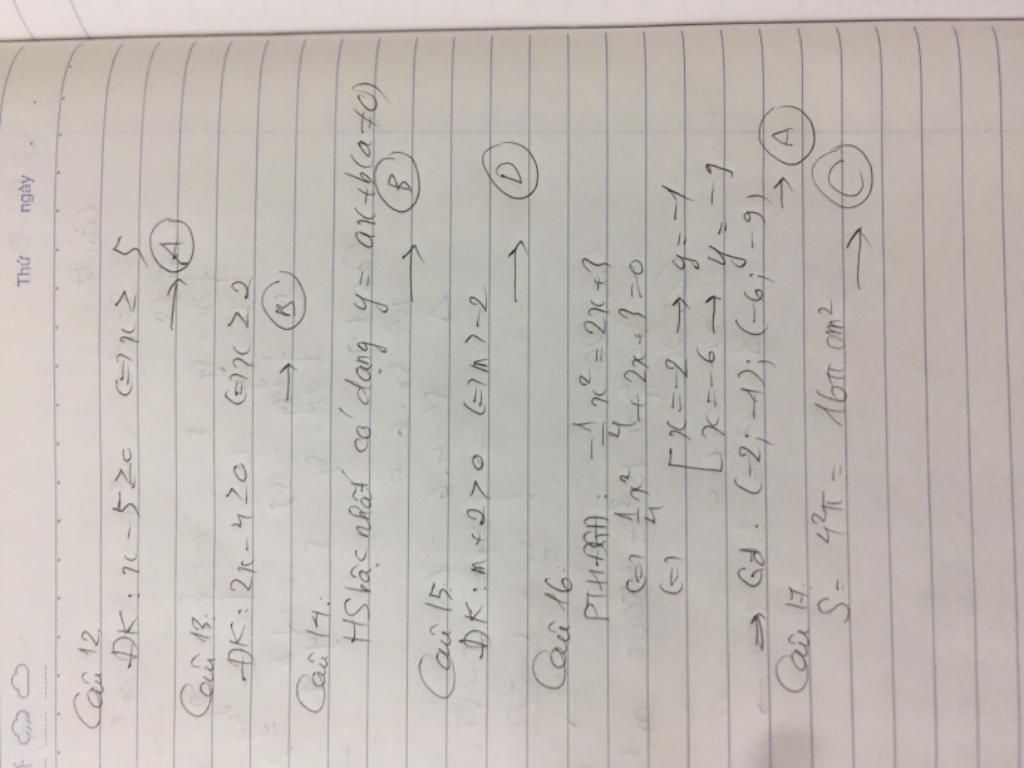 Thứ ngày
Câu 12
ĐK: x - 5 ≥ 0 (=) x ≥ 5
→ A
Câu 13.
ĐK: 2x - 4 ≥ 0 (=) x ≥ 2
→ B
Câu 14.
HS bậc nhất có dạng y = ax + b (a ≠ 0)
→ B
Câu 15.
ĐK: m + 2 > 0 (=) m > -2
→ D
Câu 16.
PTHĐGĐ: -1/4 x² = 2x + 3
(=) 1/4 x² + 2x + 3 = 0
(=) [ x = -2 → y = -1
x = -6 → y = -9
=> Gđ: (-2; -1); (-6; -9)
→ A
Câu 17.
S = 4²π = 16π cm²
→ C